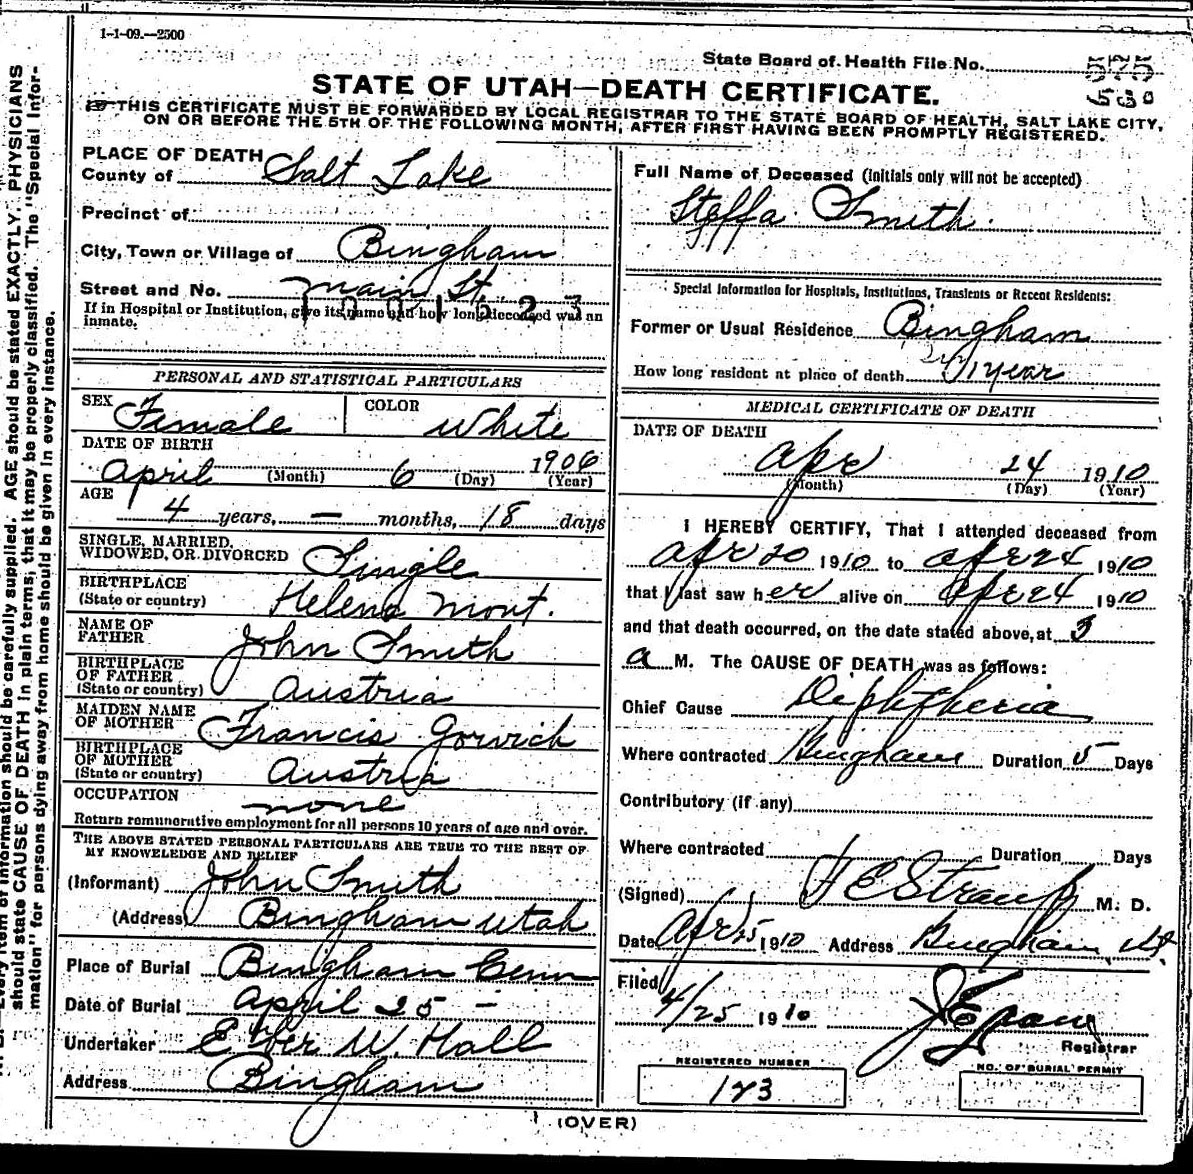 1-1-09.—2500
State Board of Health File No. 575
530
STATE OF UTAH—DEATH CERTIFICATE.
THIS CERTIFICATE MUST BE FORWARDED BY LOCAL REGISTRAR TO THE STATE BOARD OF HEALTH, SALT LAKE CITY,
ON OR BEFORE THE 5TH OF THE FOLLOWING MONTH, AFTER FIRST HAVING BEEN PROMPTLY REGISTERED.
PLACE OF DEATH
County of Salt Lake
Precinct of
City, Town or Village of Bingham
Street and No. Main St.
1001523
If in Hospital or Institution, give its name and how long deceased was an
inmate.
PERSONAL AND STATISTICAL PARTICULARS
SEX Female COLOR White
DATE OF BIRTH
April (Month) 6 (Day) 1906 (Year)
AGE
4 years, — months, 18 days
SINGLE, MARRIED,
WIDOWED, OR DIVORCED Single
BIRTHPLACE
(State or country) Helena Mont.
NAME OF
FATHER John Smith
BIRTHPLACE
OF FATHER
(State or country) Austria
MAIDEN NAME
OF MOTHER Francis Gorvich
BIRTHPLACE
OF MOTHER
(State or country) Austria
OCCUPATION none
Return remunerative employment for all persons 10 years of age and over.
THE ABOVE STATED PERSONAL PARTICULARS ARE TRUE TO THE BEST OF
MY KNOWELEDGE AND BELIEF
(Informant) John Smith
(Address) Bingham Utah
Place of Burial Bingham Cem
Date of Burial April 25 —
Undertaker E Ber W. Hall
Address Bingham
Full Name of Deceased (Initials only will not be accepted)
Steffa Smith.
Special Information for Hospitals, Institutions, Transients or Recent Residents:
Former or Usual Residence Bingham
How long resident at place of death 1 year
MEDICAL CERTIFICATE OF DEATH
DATE OF DEATH
Apr 24 1910
(Month) (Day) (Year)
I HEREBY CERTIFY, That I attended deceased from
Apr 20 1910 to Apr 24 1910
that I last saw her alive on Apr 24 1910
and that death occurred, on the date stated above, at 3
a M. The CAUSE OF DEATH was as follows:
Chief Cause Diphtheria
Where contracted Bingham Duration 5 Days
Contributory (if any)
Where contracted Duration Days
(Signed) F E Straup M. D.
Date Apr 25 1910 Address Bingham, Ut.
Filed
4/25 1910
Registrar
REGISTERED NUMBER
173
NO. OF BURIAL PERMIT
(OVER)
Every item of information should be carefully supplied. AGE should be stated EXACTLY. PHYSICIANS
should state CAUSE OF DEATH in plain terms, that it may be properly classified. The "Special Infor-
mation" for persons dying away from home should be given in every instance.